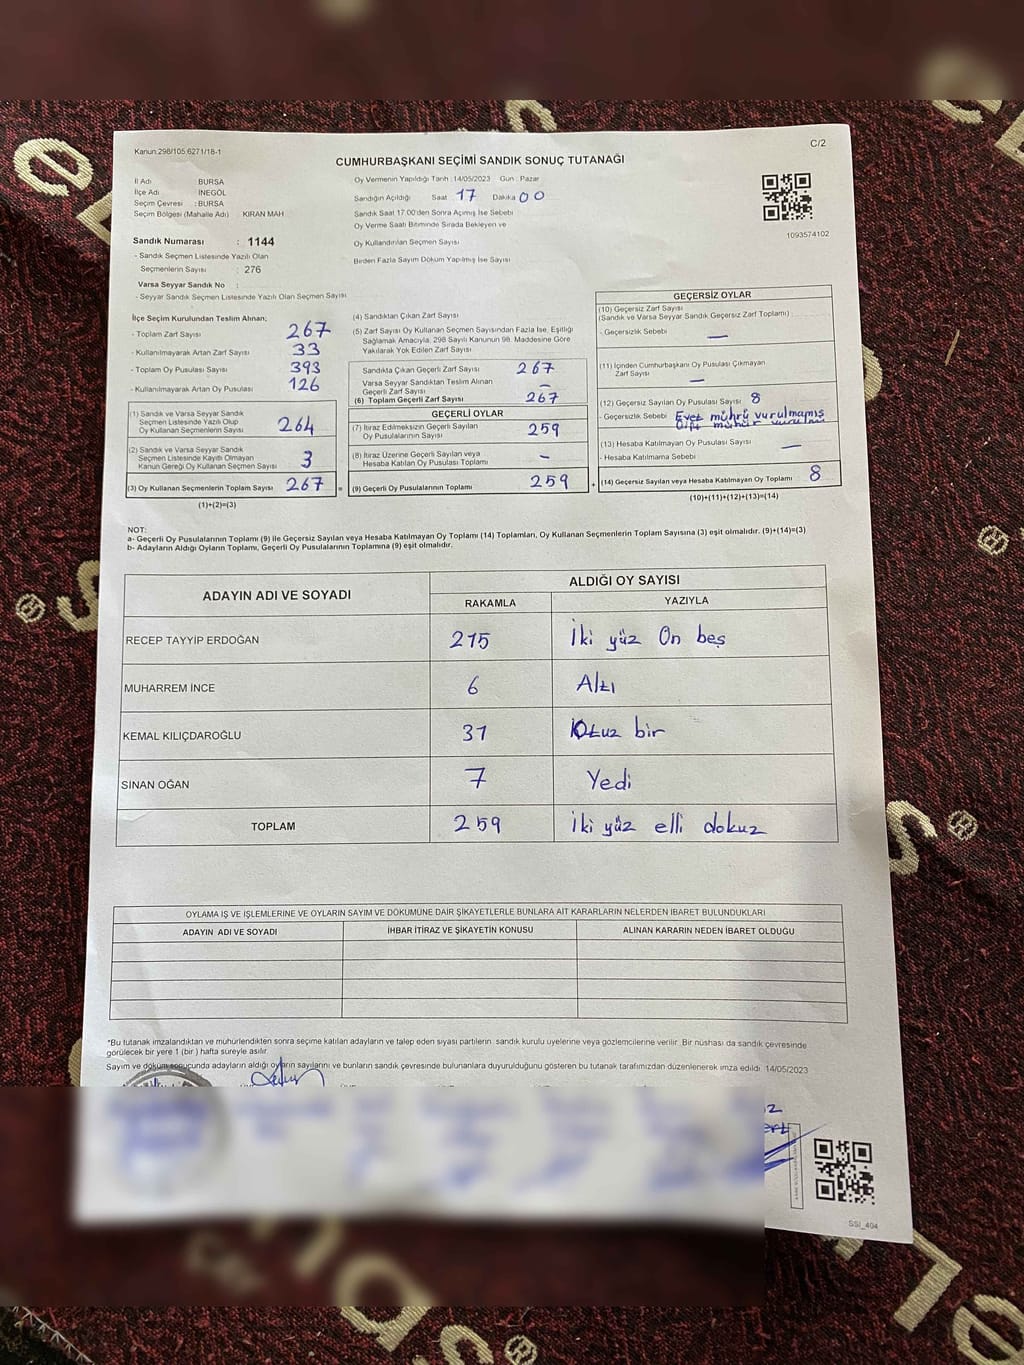 Kanun.298/105.6271/18-1
C/2
CUMHURBAŞKANI SEÇİMİ SANDIK SONUÇ TUTANAĞI
İl Adı BURSA
İlçe Adı İNEGÖL
Seçim Çevresi : BURSA
Seçim Bölgesi (Mahalle Adı) KIRAN MAH
Sandık Numarası : 1144
- Sandık Seçmen Listesinde Yazılı Olan
Seçmenlerin Sayısı : 276
Varsa Seyyar Sandık No :
- Seyyar Sandık Seçmen Listesinde Yazılı Olan Seçmen Sayısı
Oy Vermenin Yapıldığı Tarih :14/05/2023 Gün : Pazar
Sandığın Açıldığı Saat 17 Dakika 00
Sandık Saat 17.00'den Sonra Açımış İse Sebebi
Oy Verme Saati Bitiminde Sırada Bekleyen ve
Oy Kullandırılan Seçmen Sayısı
Birden Fazla Sayım Döküm Yapılmış İse Sayısı
1093574102
İlçe Seçim Kurulundan Teslim Alınan;
- Toplam Zarf Sayısı 267
- Kullanılmayarak Artan Zarf Sayısı 33
- Toplam Oy Pusulası Sayısı 393
- Kullanılmayarak Artan Oy Pusulası 126
(1) Sandık ve Varsa Seyyar Sandık
Seçmen Listesinde Yazılı Olup
Oy Kullanan Seçmenlerin Sayısı 264
(2) Sandık ve Varsa Seyyar Sandık
Seçmen Listesinde Kayıtlı Olmayan
Kanun Gereği Oy Kullanan Seçmen Sayısı 3
(3) Oy Kullanan Seçmenlerin Toplam Sayısı 267 =
(1)+(2)=(3)
(4) Sandıktan Çıkan Zarf Sayısı
(5) Zarf Sayısı Oy Kullanan Seçmen Sayısından Fazla İse, Eşitliği
Sağlamak Amacıyla, 298 Sayılı Kanunun 98. Maddesine Göre
Yakılarak Yok Edilen Zarf Sayısı
Sandıkta Çıkan Geçerli Zarf Sayısı 267
Varsa Seyyar Sandıktan Teslim Alınan
Geçerli Zarf Sayısı –
(6) Toplam Geçerli Zarf Sayısı 267
GEÇERLİ OYLAR
(7) İtiraz Edilmeksizin Geçerli Sayılan
Oy Pusulalarının Sayısı 259
(8) İtiraz Üzerine Geçerli Sayılan veya
Hesaba Katılan Oy Pusulası Toplamı –
(9) Geçerli Oy Pusulalarının Toplamı 259 +
GEÇERSİZ OYLAR
(10) Geçersiz Zarf Sayısı
(Sandık ve Varsa Seyyar Sandık Geçersiz Zarf Toplamı)
- Geçersizlik Sebebi –
(11) İçinden Cumhurbaşkanı Oy Pusulası Çıkmayan
Zarf Sayısı –
(12) Geçersiz Sayılan Oy Pusulası Sayısı 8
- Geçersizlik Sebebi Evet mührü vurulmamış
Çift mühür vurulmu
(13) Hesaba Katılmayan Oy Pusulası Sayısı –
- Hesaba Katılmama Sebebi
(14) Geçersiz Sayılan veya Hesaba Katılmayan Oy Toplamı 8
(10)+(11)+(12)+(13)=(14)
NOT:
a- Geçerli Oy Pusulalarının Toplamı (9) ile Geçersiz Sayılan veya Hesaba Katılmayan Oy Toplamı (14) Toplamları, Oy Kullanan Seçmenlerin Toplam Sayısına (3) eşit olmalıdır. (9)+(14)=(3)
b- Adayların Aldığı Oyların Toplamı, Geçerli Oy Pusulalarının Toplamına (9) eşit olmalıdır.
ADAYIN ADI VE SOYADI
ALDIĞI OY SAYISI
RAKAMLA YAZIYLA
RECEP TAYYİP ERDOĞAN 215 İki yüz On beş
MUHARREM İNCE 6 Altı
KEMAL KILIÇDAROĞLU 31 Otuz bir
SİNAN OĞAN 7 Yedi
TOPLAM 259 İki yüz elli dokuz
OYLAMA İŞ VE İŞLEMLERİNE VE OYLARIN SAYIM VE DÖKÜMÜNE DAİR ŞİKAYETLERLE BUNLARA AİT KARARLARIN NELERDEN İBARET BULUNDUKLARI
ADAYIN ADI VE SOYADI İHBAR İTİRAZ VE ŞİKAYETİN KONUSU ALINAN KARARIN NEDEN İBARET OLDUĞU
*Bu tutanak imzalandıktan ve mühürlendikten sonra seçime katılan adayların ve talep eden siyasi partilerin, sandık kurulu üyelerine veya gözlemcilerine verilir. Bir nüshası da sandık çevresinde
görülecek bir yere 1 (bir ) hafta süreyle asılır.
Sayım ve döküm sonucunda adayların aldığı oyların sayılarını ve bunların sandık çevresinde bulunanlara duyurulduğunu gösteren bu tutanak tarafımızdan düzenlenerek imza edildi. 14/05/2023
SSİ_404